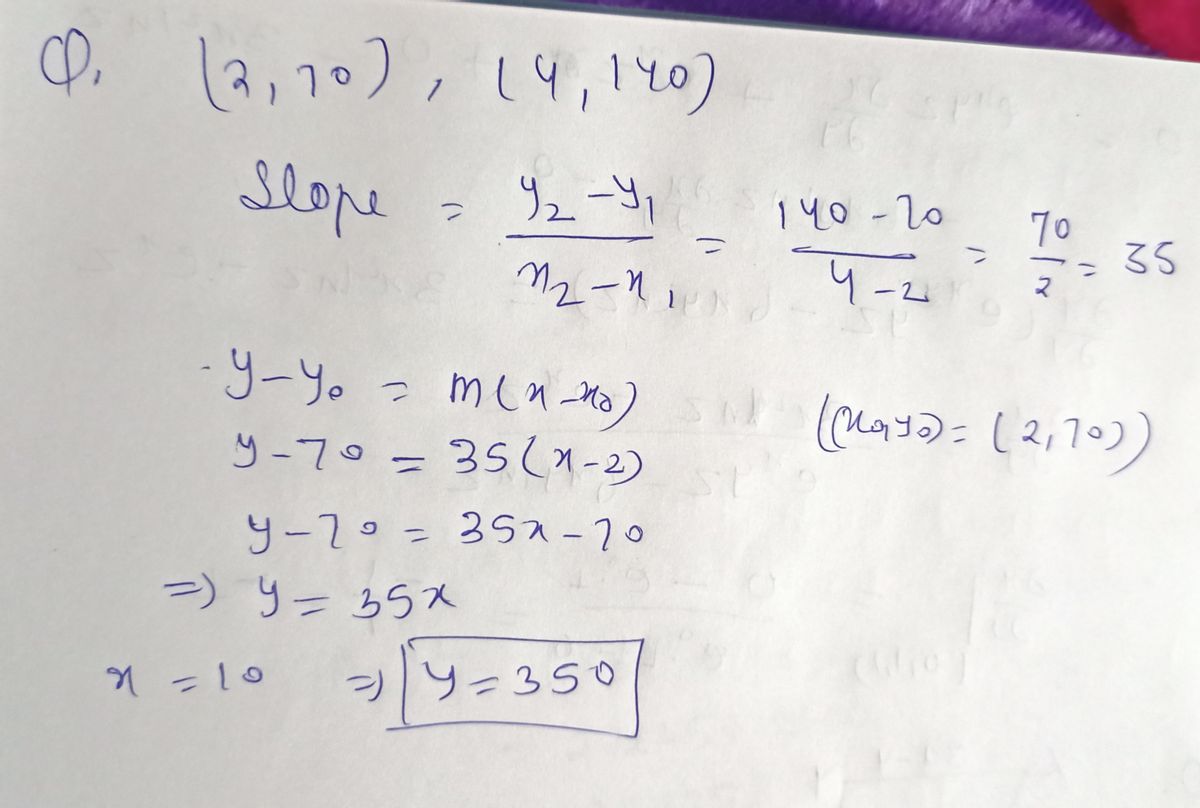 Q. (2,70), (4,140)
Slope = y₂-y₁/x₂-x₁ = 140-70/4-2 = 70/2 = 35
y-y₀ = m(x-x₀) ((x₀,y₀) = (2,70))
y-70 = 35(x-2)
y-70 = 35x-70
=) y = 35x
x = 10 =) y = 350